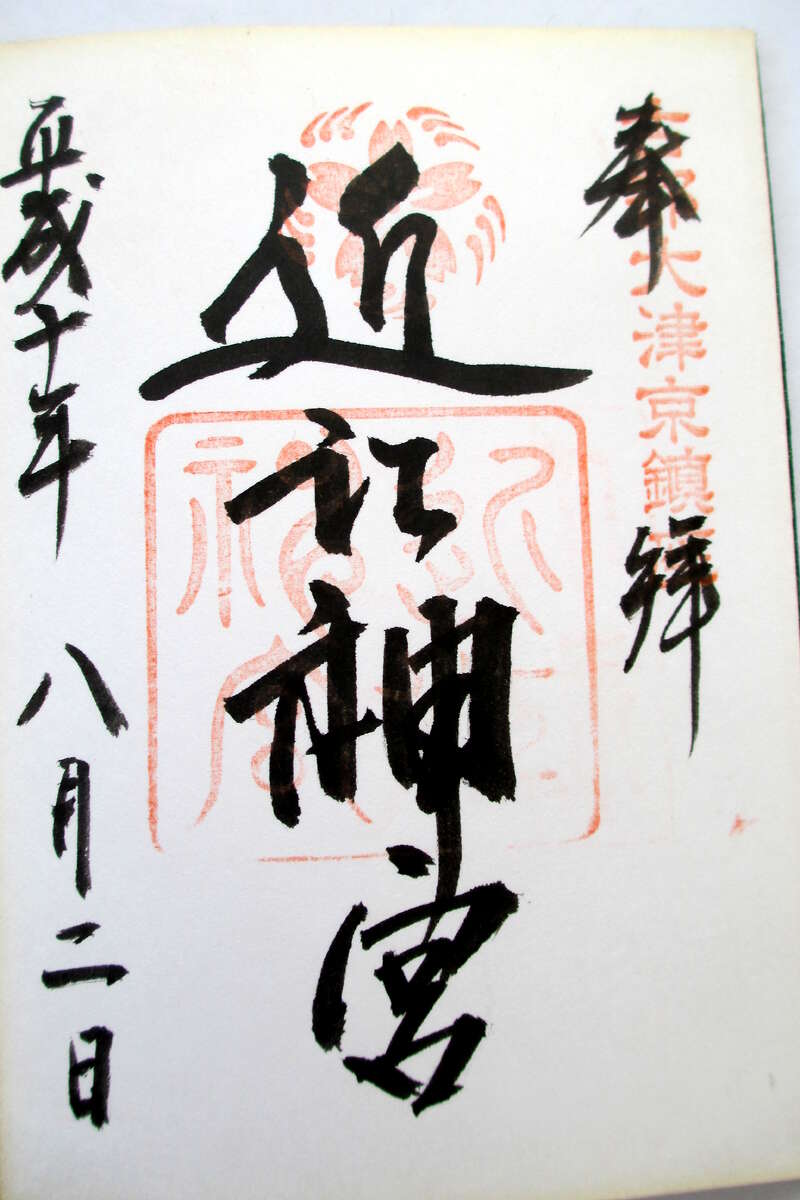 奉拝
古都大津京鎮座
近江神宮
近江神宮
平成十年 八月二日